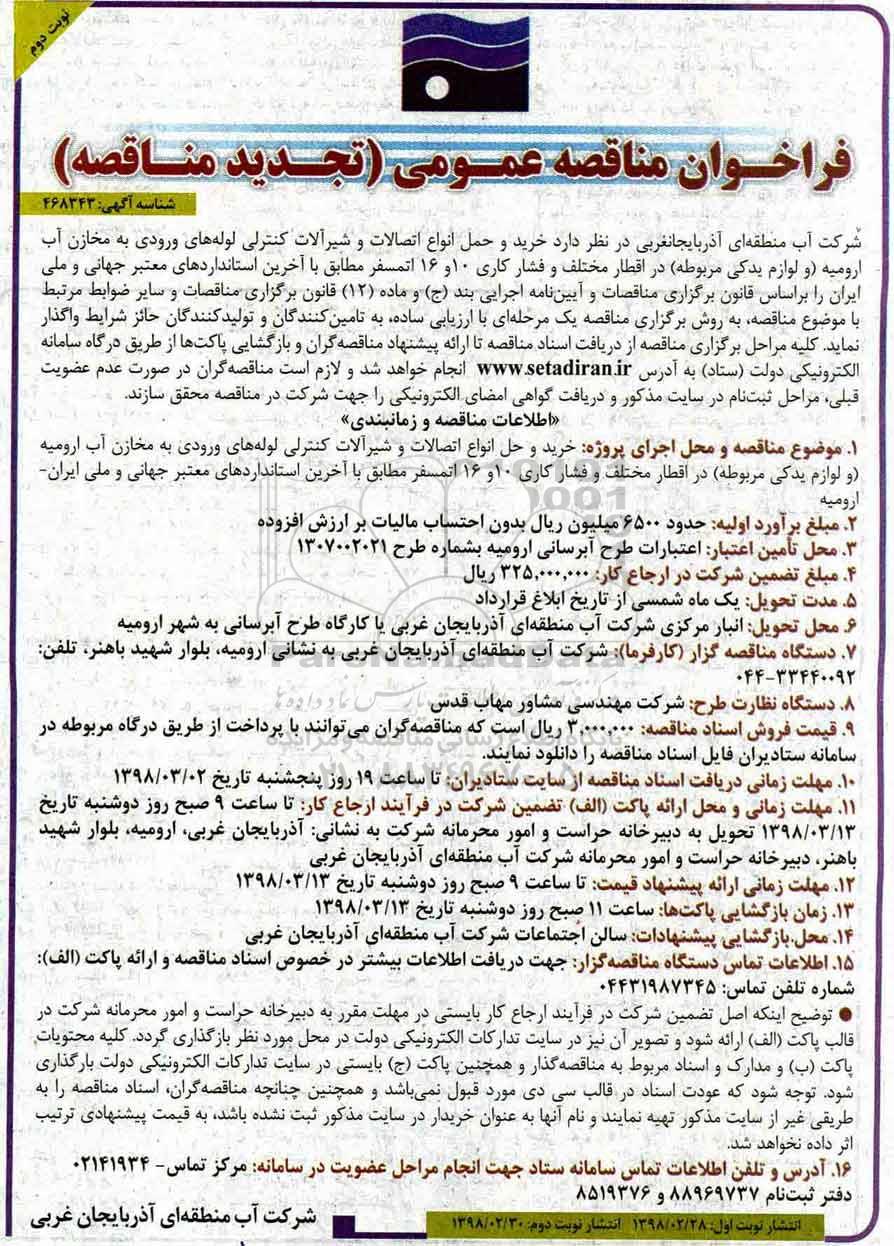 نوبت دوم
فراخـوان مناقصه عمـومی (تجـدید منـاقصه)
شناسه آگهی: ۴۶۸۳۴۳
شرکت آب منطقه‌ای آذربایجانغربی در نظر دارد خرید و حمل انواع اتصالات و شیرآلات کنترلی لوله‌های ورودی به مخازن آب
ارومیه (و لوازم یدکی مربوطه) در اقطار مختلف و فشار کاری ۱۰و ۱۶ اتمسفر مطابق با آخرین استانداردهای معتبر جهانی و ملی
ایران را براساس قانون برگزاری مناقصات و آیین‌نامه اجرایی بند (ج) و ماده (۱۲) قانون برگزاری مناقصات و سایر ضوابط مرتبط
با موضوع مناقصه، به روش برگزاری مناقصه یک مرحله‌ای با ارزیابی ساده، به تامین‌کنندگان و تولیدکنندگان حائز شرایط واگذار
نماید. کلیه مراحل برگزاری مناقصه از دریافت اسناد مناقصه تا ارائه پیشنهاد مناقصه‌گران و بازگشایی پاکت‌ها از طریق درگاه سامانه
الکترونیکی دولت (ستاد) به آدرس www.setadiran.ir انجام خواهد شد و لازم است مناقصه‌گران در صورت عدم عضویت
قبلی، مراحل ثبت‌نام در سایت مذکور و دریافت گواهی امضای الکترونیکی را جهت شرکت در مناقصه محقق سازند.
«اطلاعات مناقصه و زمانبندی»
۱. موضوع مناقصه و محل اجرای پروژه: خرید و حل انواع اتصالات و شیرآلات کنترلی لوله‌های ورودی به مخازن آب ارومیه
(و لوازم یدکی مربوطه) در اقطار مختلف و فشار کاری ۱۰و ۱۶ اتمسفر مطابق با آخرین استانداردهای معتبر جهانی و ملی ایران-
ارومیه
۲. مبلغ برآورد اولیه: حدود ۶۵۰۰ میلیون ریال بدون احتساب مالیات بر ارزش افزوده
۳. محل تأمین اعتبار: اعتبارات طرح آبرسانی ارومیه بشماره طرح ۱۳۰۷۰۰۲۰۲۱
۴. مبلغ تضمین شرکت در ارجاع کار: ۳۲۵,۰۰۰,۰۰۰ ریال
۵. مدت تحویل: یک ماه شمسی از تاریخ ابلاغ قرارداد
۶. محل تحویل: انبار مرکزی شرکت آب منطقه‌ای آذربایجان غربی یا کارگاه طرح آبرسانی به شهر ارومیه
۷. دستگاه مناقصه گزار (کارفرما): شرکت آب منطقه‌ای آذربایجان غربی به نشانی ارومیه، بلوار شهید باهنر، تلفن:
۰۴۴-۳۳۴۴۰۰۹۲
۸. دستگاه نظارت طرح: شرکت مهندسی مشاور مهاب قدس
۹. قیمت فروش اسناد مناقصه: ۳,۰۰۰,۰۰۰ ریال است که مناقصه‌گران می‌توانند با پرداخت از طریق درگاه مربوطه در
سامانه ستادیران فایل اسناد مناقصه را دانلود نمایند.
۱۰. مهلت زمانی دریافت اسناد مناقصه از سایت ستادیران: تا ساعت ۱۹ روز پنجشنبه تاریخ ۱۳۹۸/۰۳/۰۲
۱۱. مهلت زمانی و محل ارائه پاکت (الف) تضمین شرکت در فرآیند ارجاع کار: تا ساعت ۹ صبح روز دوشنبه تاریخ
۱۳۹۸/۰۳/۱۳ تحویل به دبیرخانه حراست و امور محرمانه شرکت به نشانی: آذربایجان غربی، ارومیه، بلوار شهید
باهنر، دبیرخانه حراست و امور محرمانه شرکت آب منطقه‌ای آذربایجان غربی
۱۲. مهلت زمانی ارائه پیشنهاد قیمت: تا ساعت ۹ صبح روز دوشنبه تاریخ ۱۳۹۸/۰۳/۱۳
۱۳. زمان بازگشایی پاکت‌ها: ساعت ۱۱ صبح روز دوشنبه تاریخ ۱۳۹۸/۰۳/۱۳
۱۴. محل بازگشایی پیشنهادات: سالن اجتماعات شرکت آب منطقه‌ای آذربایجان غربی
۱۵. اطلاعات تماس دستگاه مناقصه‌گزار: جهت دریافت اطلاعات بیشتر در خصوص اسناد مناقصه و ارائه پاکت (الف):
شماره تلفن تماس: ۰۴۴۳۱۹۸۷۳۴۵
● توضیح اینکه اصل تضمین شرکت در فرآیند ارجاع کار بایستی در مهلت مقرر به دبیرخانه حراست و امور محرمانه شرکت در
قالب پاکت (الف) ارائه شود و تصویر آن نیز در سایت تدارکات الکترونیکی دولت در محل مورد نظر بازگذاری گردد. کلیه محتویات
پاکت (ب) و مدارک و اسناد مربوط به مناقصه‌گذار و همچنین پاکت (ج) بایستی در سایت تدارکات الکترونیکی دولت بارگذاری
شود. توجه شود که عودت اسناد در قالب سی دی مورد قبول نمی‌باشد و همچنین چنانچه مناقصه‌گران، اسناد مناقصه را به
طریقی غیر از سایت مذکور تهیه نمایند و نام آنها به عنوان خریدار در سایت مذکور ثبت نشده باشد، به قیمت پیشنهادی ترتیب
اثر داده نخواهد شد.
۱۶. آدرس و تلفن اطلاعات تماس سامانه ستاد جهت انجام مراحل عضویت در سامانه: مرکز تماس- ۰۲۱۴۱۹۳۴
دفتر ثبت‌نام ۸۸۹۶۹۷۳۷ و ۸۵۱۹۳۷۶
انتشار نوبت اول: ۱۳۹۸/۰۲/۲۸ انتشار نوبت دوم: ۱۳۹۸/۰۲/۳۰
شرکت آب منطقه‌ای آذربایجان غربی